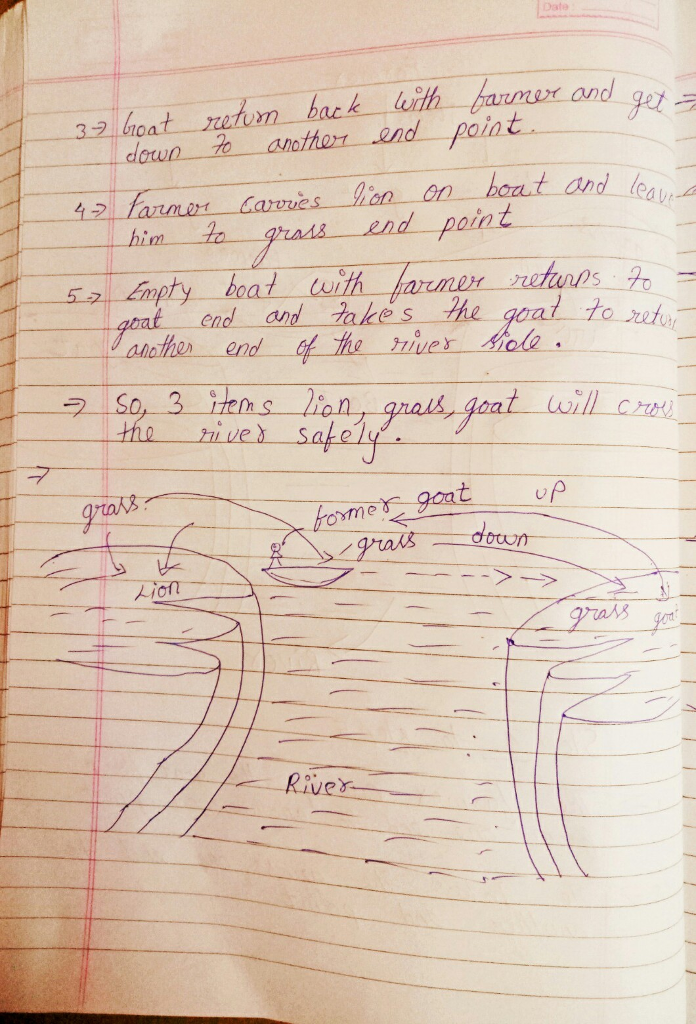 Date
3→ Goat return back with farmer and get
down to another end point.
4→ Farmer carries lion on boat and leav
him to grass end point
5→ Empty boat with farmer returns to
goat end and takes the goat to retu
another end of the river side.
→ So, 3 items lion, grass, goat will cross
the river safely.
→
grass
farmer goat UP
grass down
Lion
grass goat
River